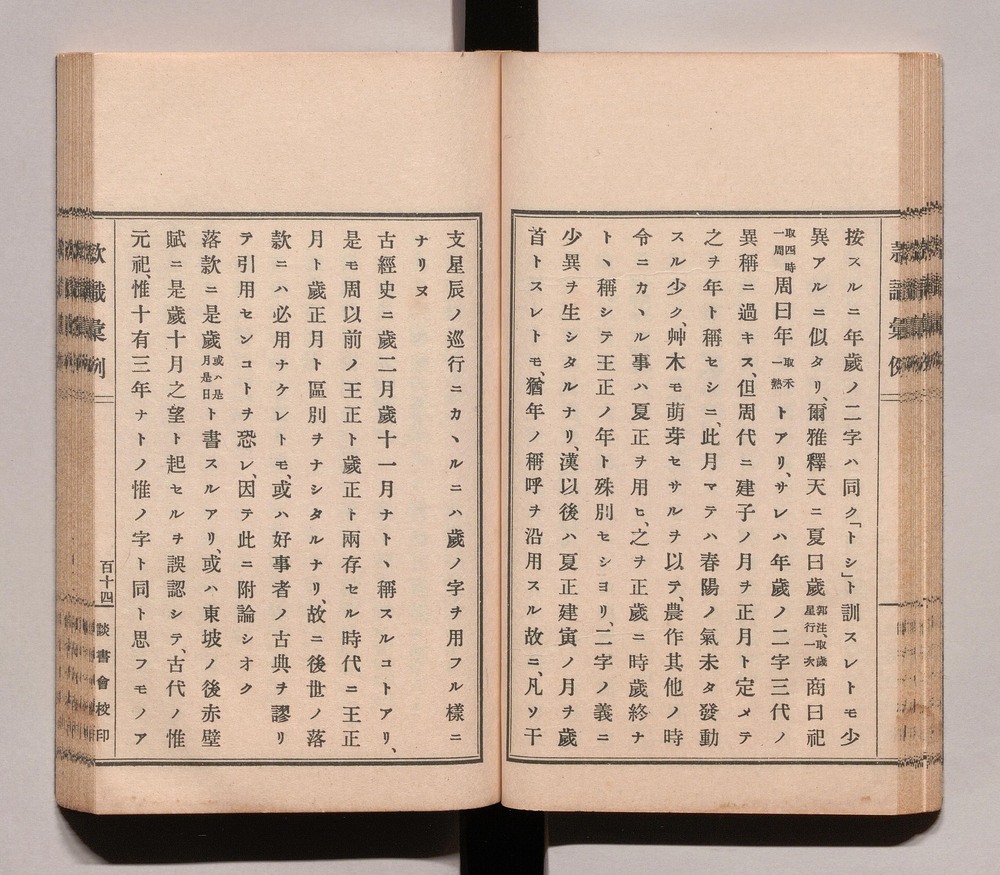 按スルニ年歲ノ二字ハ同ク「トシ」ト訓スレトモ少
異アルニ似タリ、爾雅釋天ニ夏曰歲郭注、取歲星行一次商曰祀
取四時一周周曰年取禾一熟トアリ、サレハ年歲ノ二字三代ノ
異稱ニ過キス、但周代ニ建子ノ月ヲ正月ト定メテ
之ヲ年ト稱セシニ、此月マテハ春陽ノ氣未タ發動
スル少ク、艸木モ萌芽セサルヲ以テ、農作其他ノ時
令ニカヽル事ハ夏正ヲ用ヒ、之ヲ正歲ニ時歲終ナ
トヽ稱シテ王正ノ年ト殊別セシヨリ、二字ノ義ニ
少異ヲ生シタルナリ、漢以後ハ夏正建寅ノ月ヲ歲
首トスレトモ、猶年ノ稱呼ヲ沿用スル故ニ、凡ソ干
支星辰ノ巡行ニカヽルニハ歲ノ字ヲ用フル樣ニ
ナリヌ
古經史ニ歲二月歲十一月ナトヽ稱スルコトアリ、
是モ周以前ノ王正ト歲正ト兩存セル時代ニ王正
月ト歲正月ト區別ヲナシタルナリ、故ニ後世ノ落
款ニハ必用ナケレトモ、或ハ好事者ノ古典ヲ謬リ
テ引用センコトヲ恐レ、因テ此ニ附論シオク
落款ニ是歲或ハ是月是日ト書スルアリ、或ハ東坡ノ後赤壁
賦ニ是歲十月之望ト起セルヲ誤認シテ、古代ノ惟
元祀、惟十有三年ナトノ惟ノ字ト同ト思フモノア
款識彙例
百十四
談書會校印